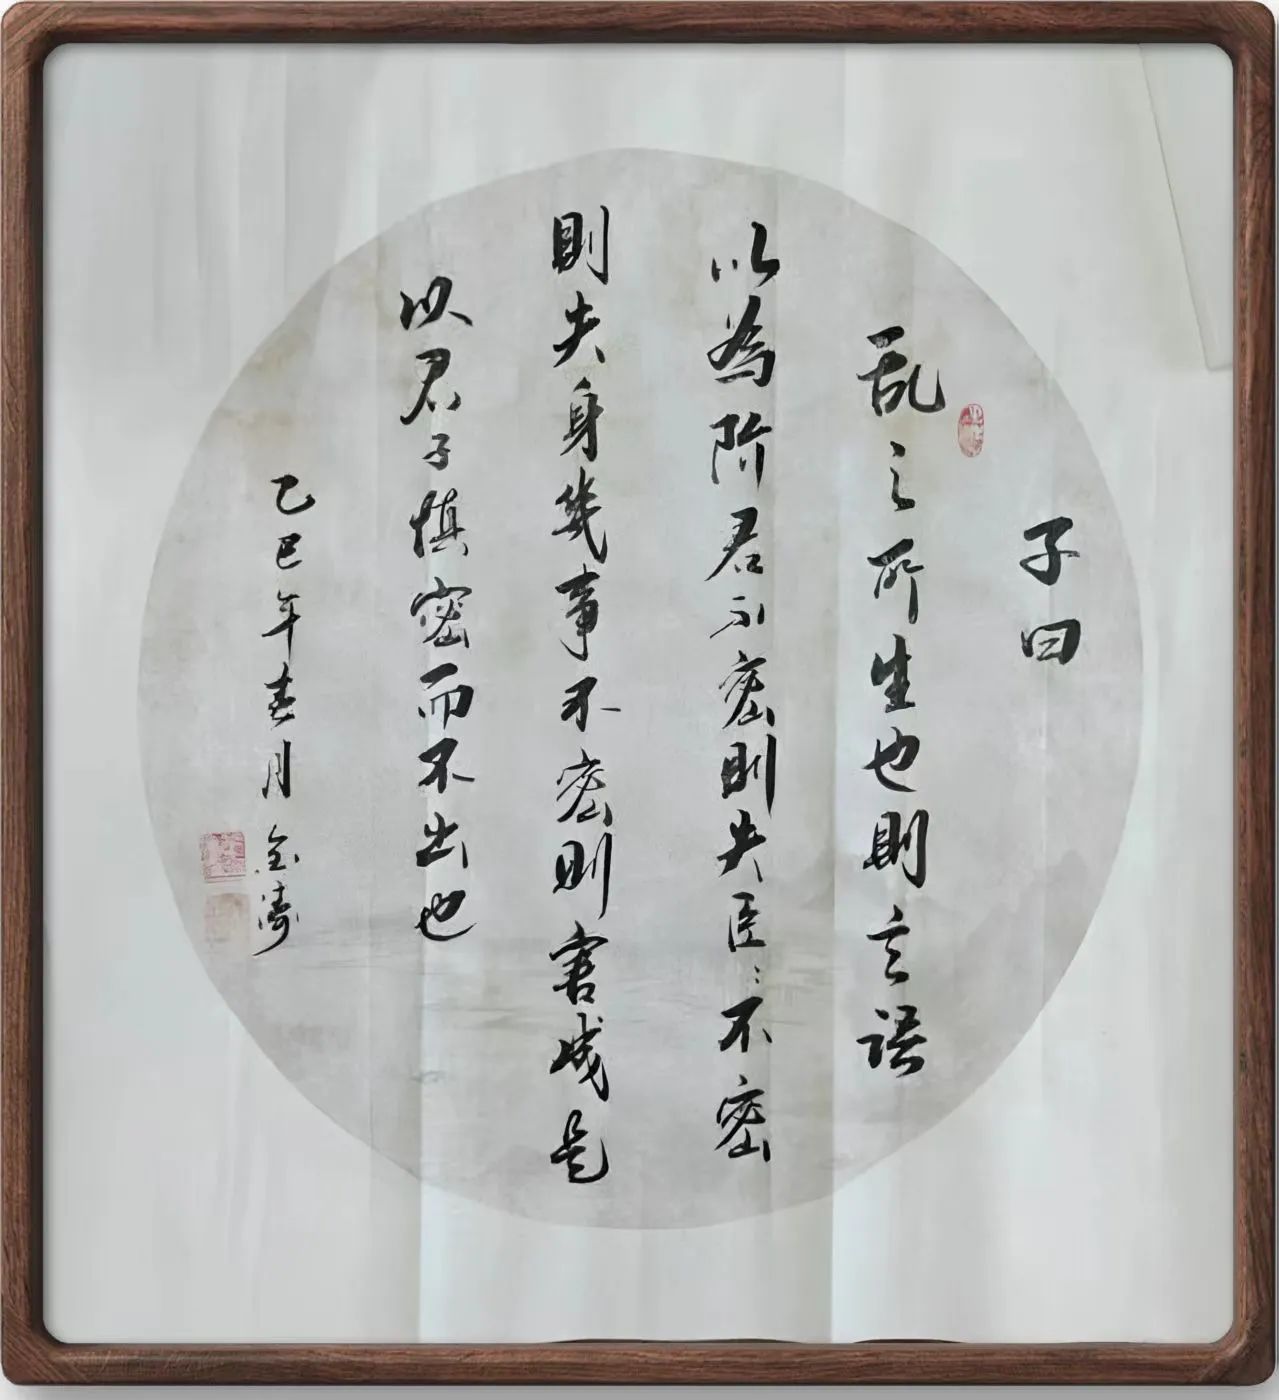 子曰
乱之所生也則言语
以為阶君不密則失臣:不密
則失身幾事不密則害成是
以君子慎密而不出也
乙巳年春月金濤